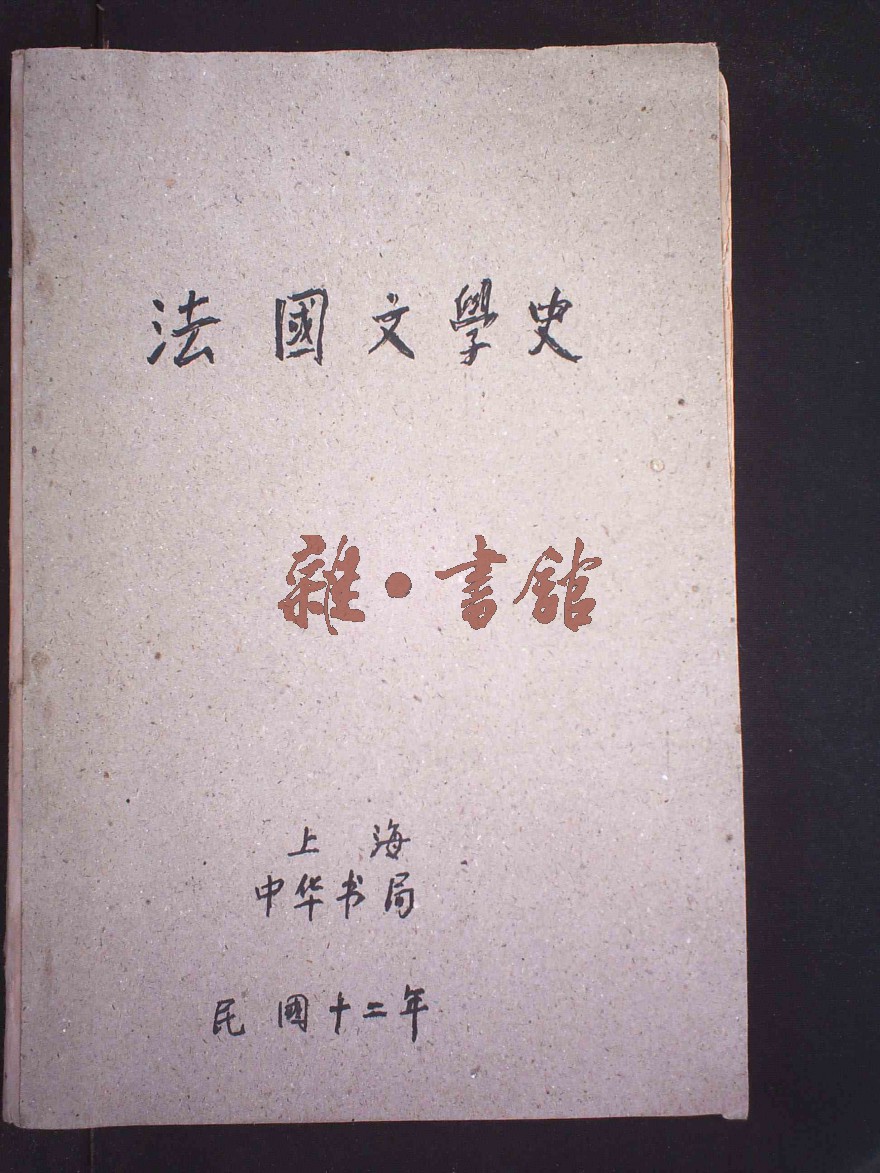 法國文學史
雜·書館
上海
中华书局
民國十二年